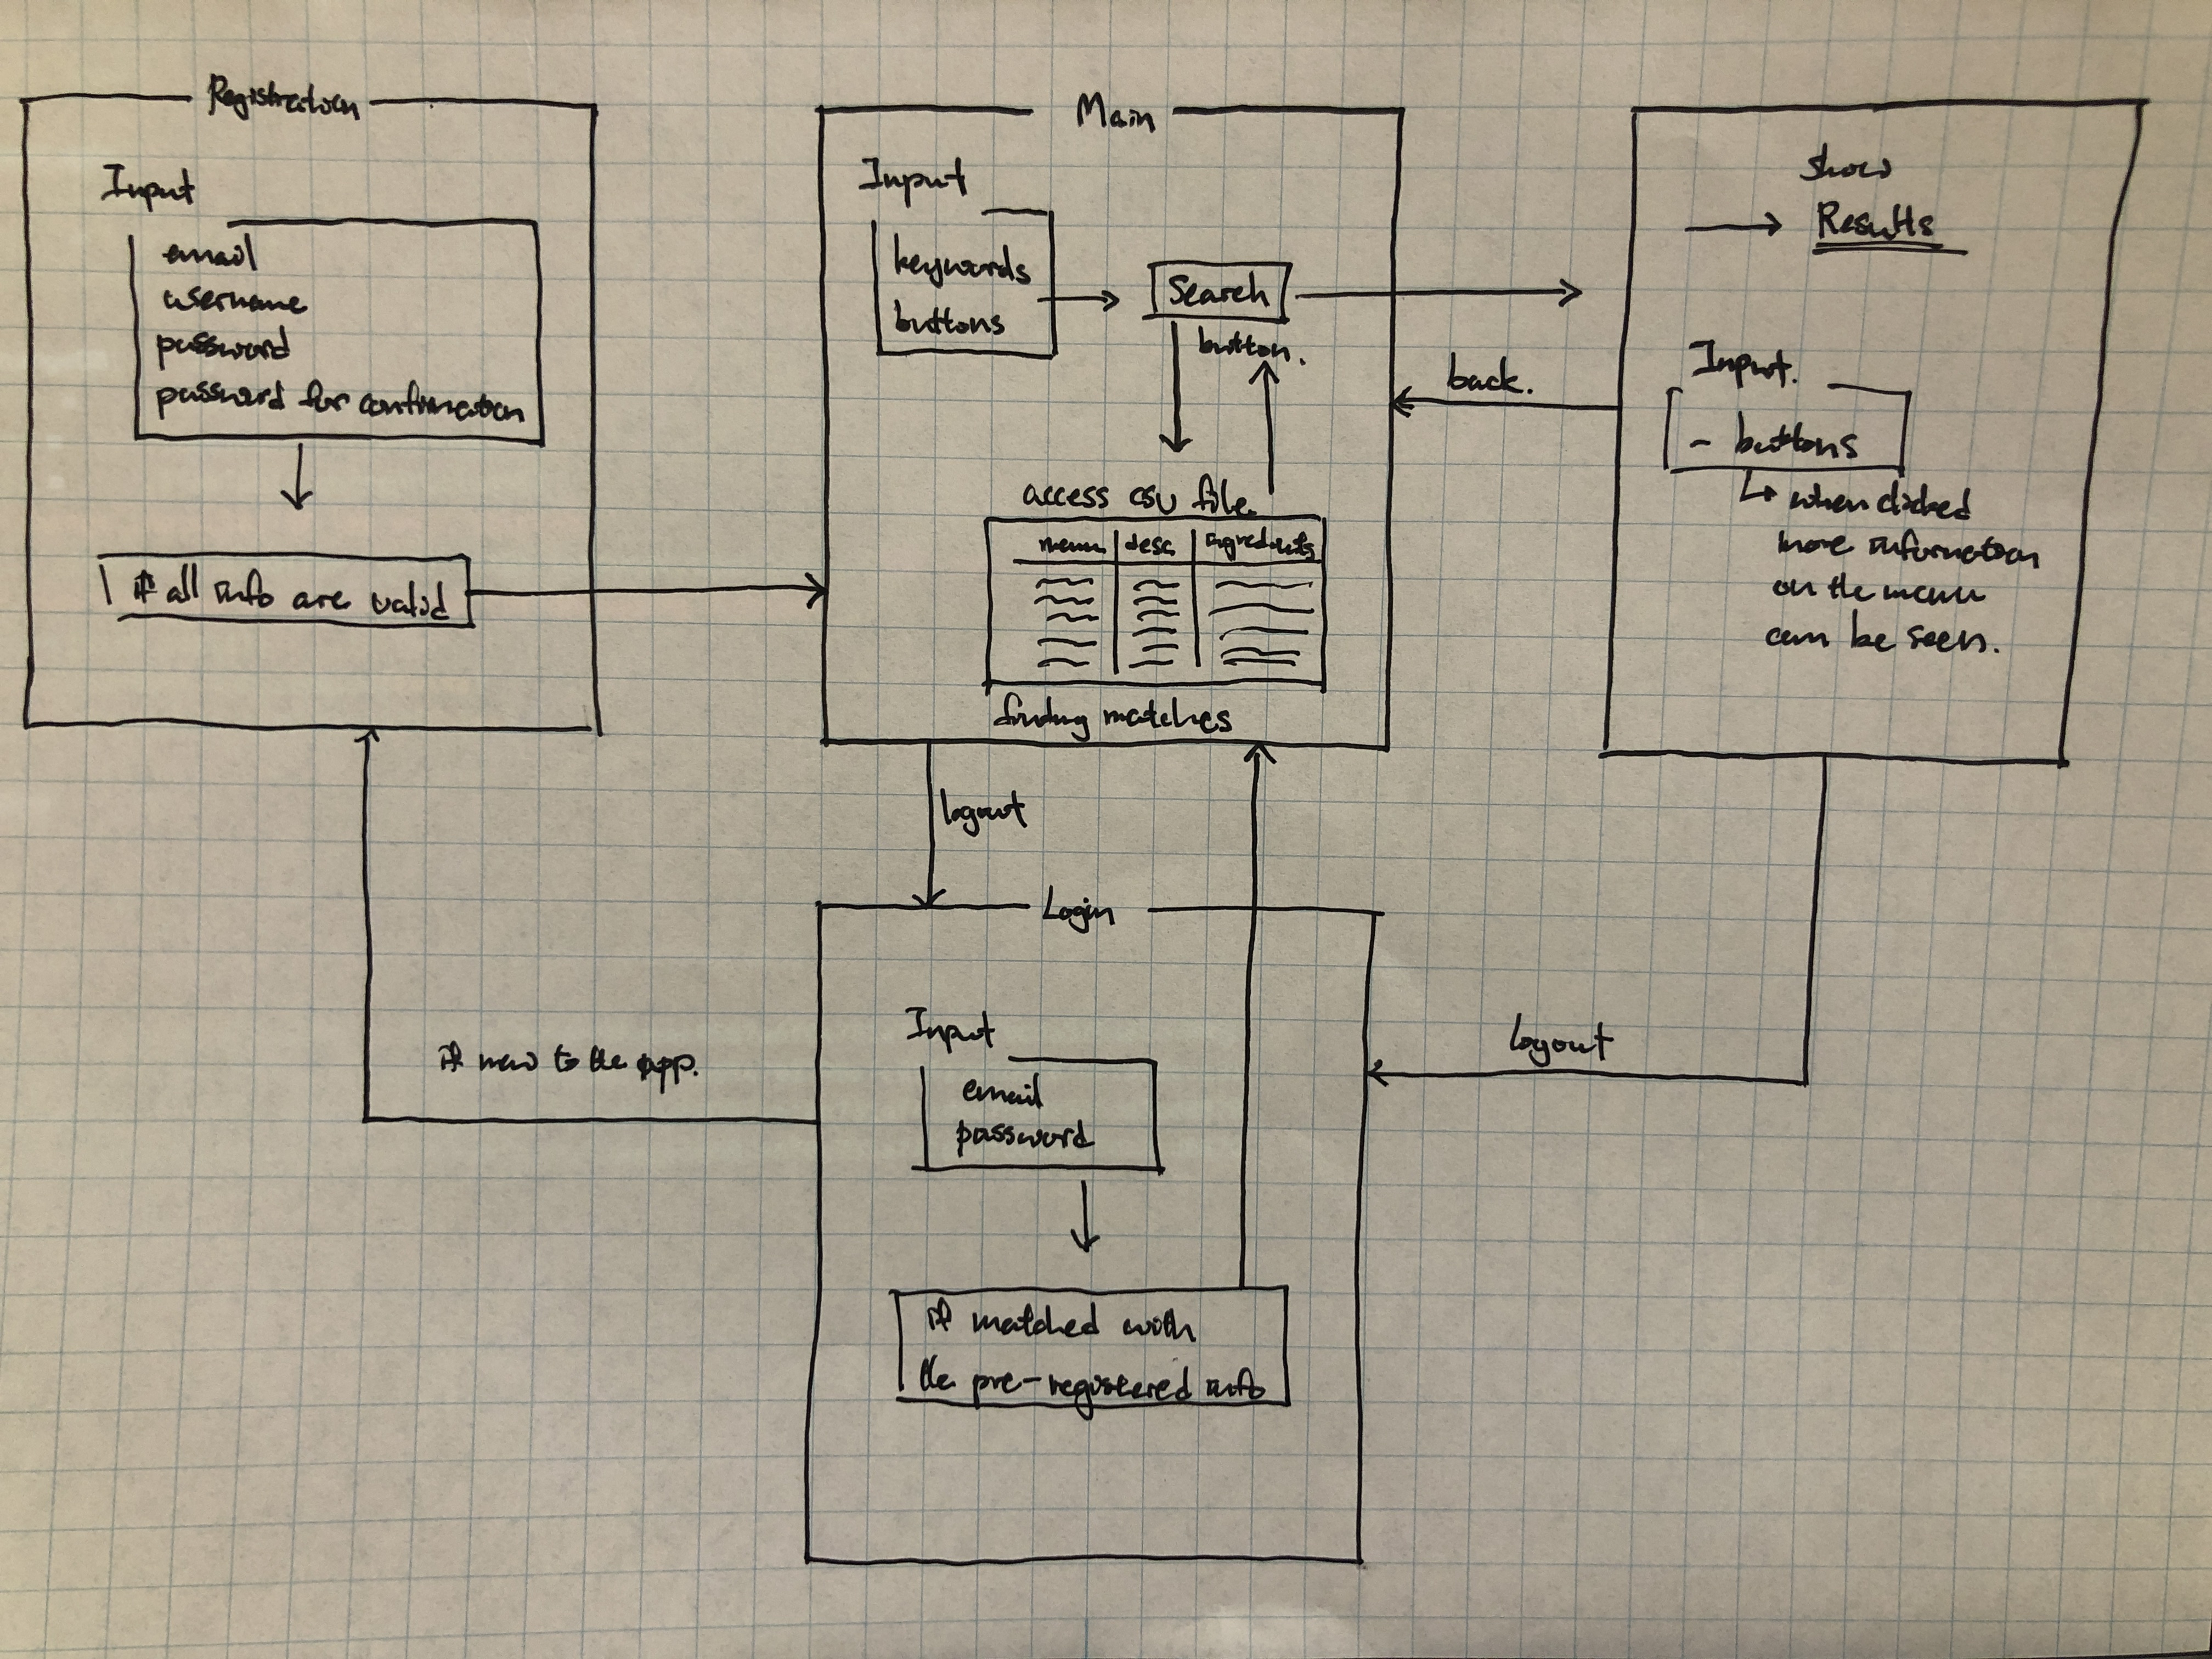 Registration
Input
email
username
password
password for confirmation
if all info are valid
Main
Input
keywords
buttons
Search
button.
access csv file
menu desc ingredients
finding matches
show
Results
back.
Input.
- buttons
when clicked
more information
on the menu
can be seen.
logout
if new to the app.
Login
Input
email
password
if matched with
the pre-registered info
logout